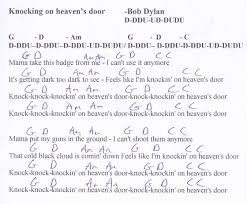 Knocking on heaven's door -Bob Dylan
D-DDU-UD-DUDU
G - D - Am G - D - C
D-DDU--D-DDU--D-DDU-UD-DUDU/ D-DDU--D-DDU--D-DDU-UD-DUDU
G D Am Am G D C C
Mama take this badge from me - I can't use it anymore
G D Am Am G D C C
It's getting dark too dark to see - Feels like I'm knockin' on heaven's door
G D Am Am G D C C
Knock-knock-knockin' on heaven's door - Knock-knock-knockin' on heaven's door
G D Am Am G D C C
Knock-knock-knockin' on heaven's door - Knock-knock-knockin' on heaven's door
G D Am Am G D C C
Mama put my guns in the ground - I can't shoot them anymore
G D Am Am G D C C
That cold black cloud is comin' down Feels like I'm knockin' on heaven's door
G D Am Am G D C C
Knock-knock-knockin' on heaven's door - Knock-knock-knockin' on heaven's door
G D Am Am G D C C
Knock-knock-knockin' on heaven's door - Knock-knock-knockin' on heaven's door